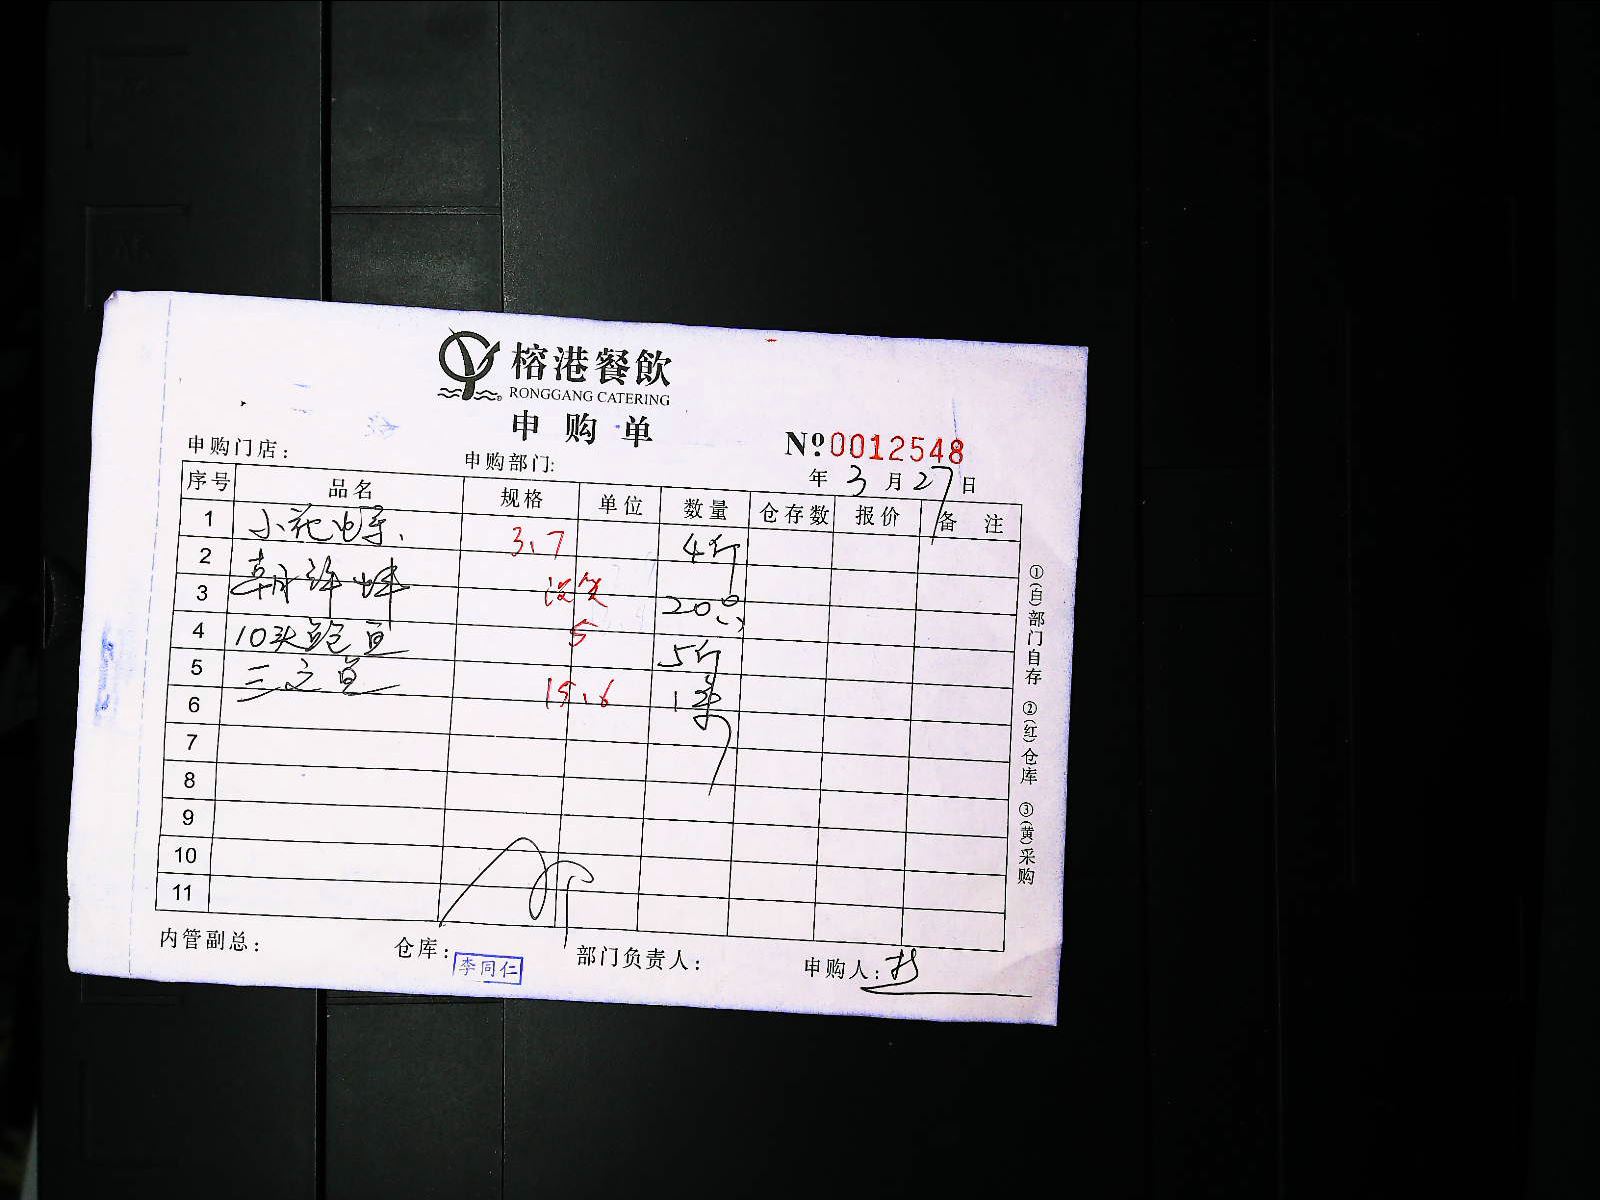 榕港餐飲
RONGGANG CATERING
申购单
申购门店: 申购部门: №0012548
年 3 月 27 日
序号 品名 规格 单位 数量 仓存数 报价 备注
1 小花 3.7 4斤
2
3 20只
4 10头鲍鱼 5 5斤
5 三文鱼
6 15.6 1条
7
8
9
10
11
内管副总: 仓库: 李同仁 部门负责人: 申购人:
①(白)部门自存 ②(红)仓库 ③(黄)采购